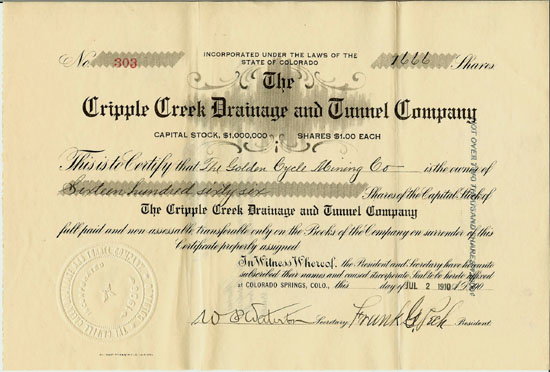 No. 303
INCORPORATED UNDER THE LAWS OF THE
STATE OF COLORADO
1666 Shares
The
Cripple Creek Drainage and Tunnel Company
CAPITAL STOCK, $1,000,000 SHARES $1.00 EACH
This is to Certify that The Golden Cycle Mining Co is the owner of
Sixteen hundred sixty six Shares of the Capital Stock of
The Cripple Creek Drainage and Tunnel Company
full paid and non assessable transferable only on the Books of the Company on surrender of this
Certificate properly assigned
In Witness Whereof, the President and Secretary have hereunto
subscribed their names and caused its corporate Seal to be hereto affixed
at COLORADO SPRINGS, COLO., this day of JUL 2 1910 A.D. 190
Secretary Frank G. Peck President
NOT OVER TWO THOUSAND SHARES